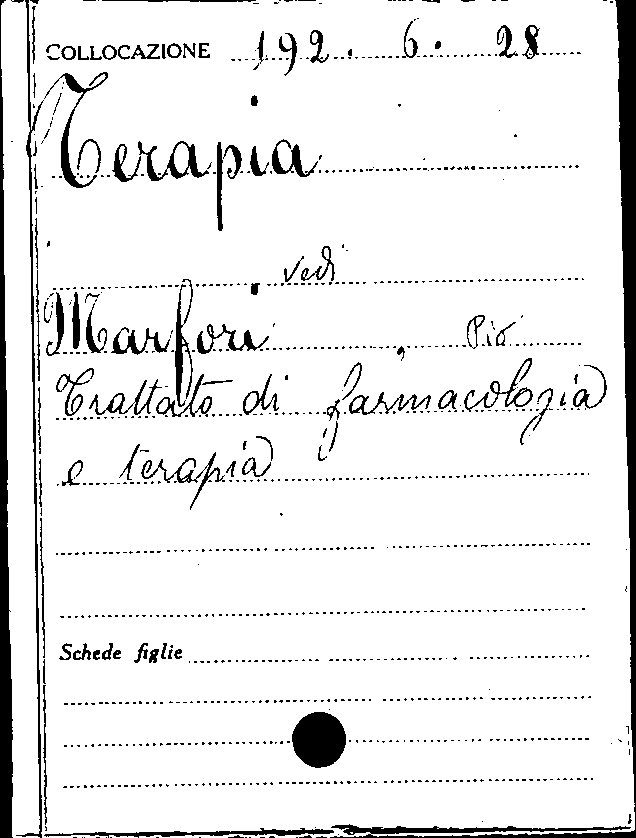 COLLOCAZIONE 192. 6. 28
Terapia
vedi
Marfori, Pio
Trattato di farmacologia
e terapia
Schede figlie